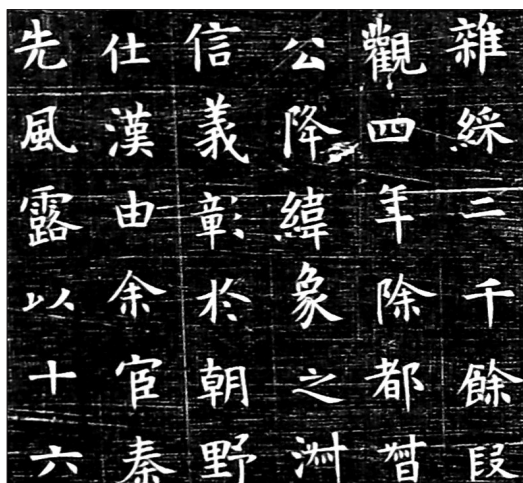 雜綵二千餘段
觀四年除都督
公降緯象之淋
信義彰於朝野
仕漢由余宦秦
先風露以十六